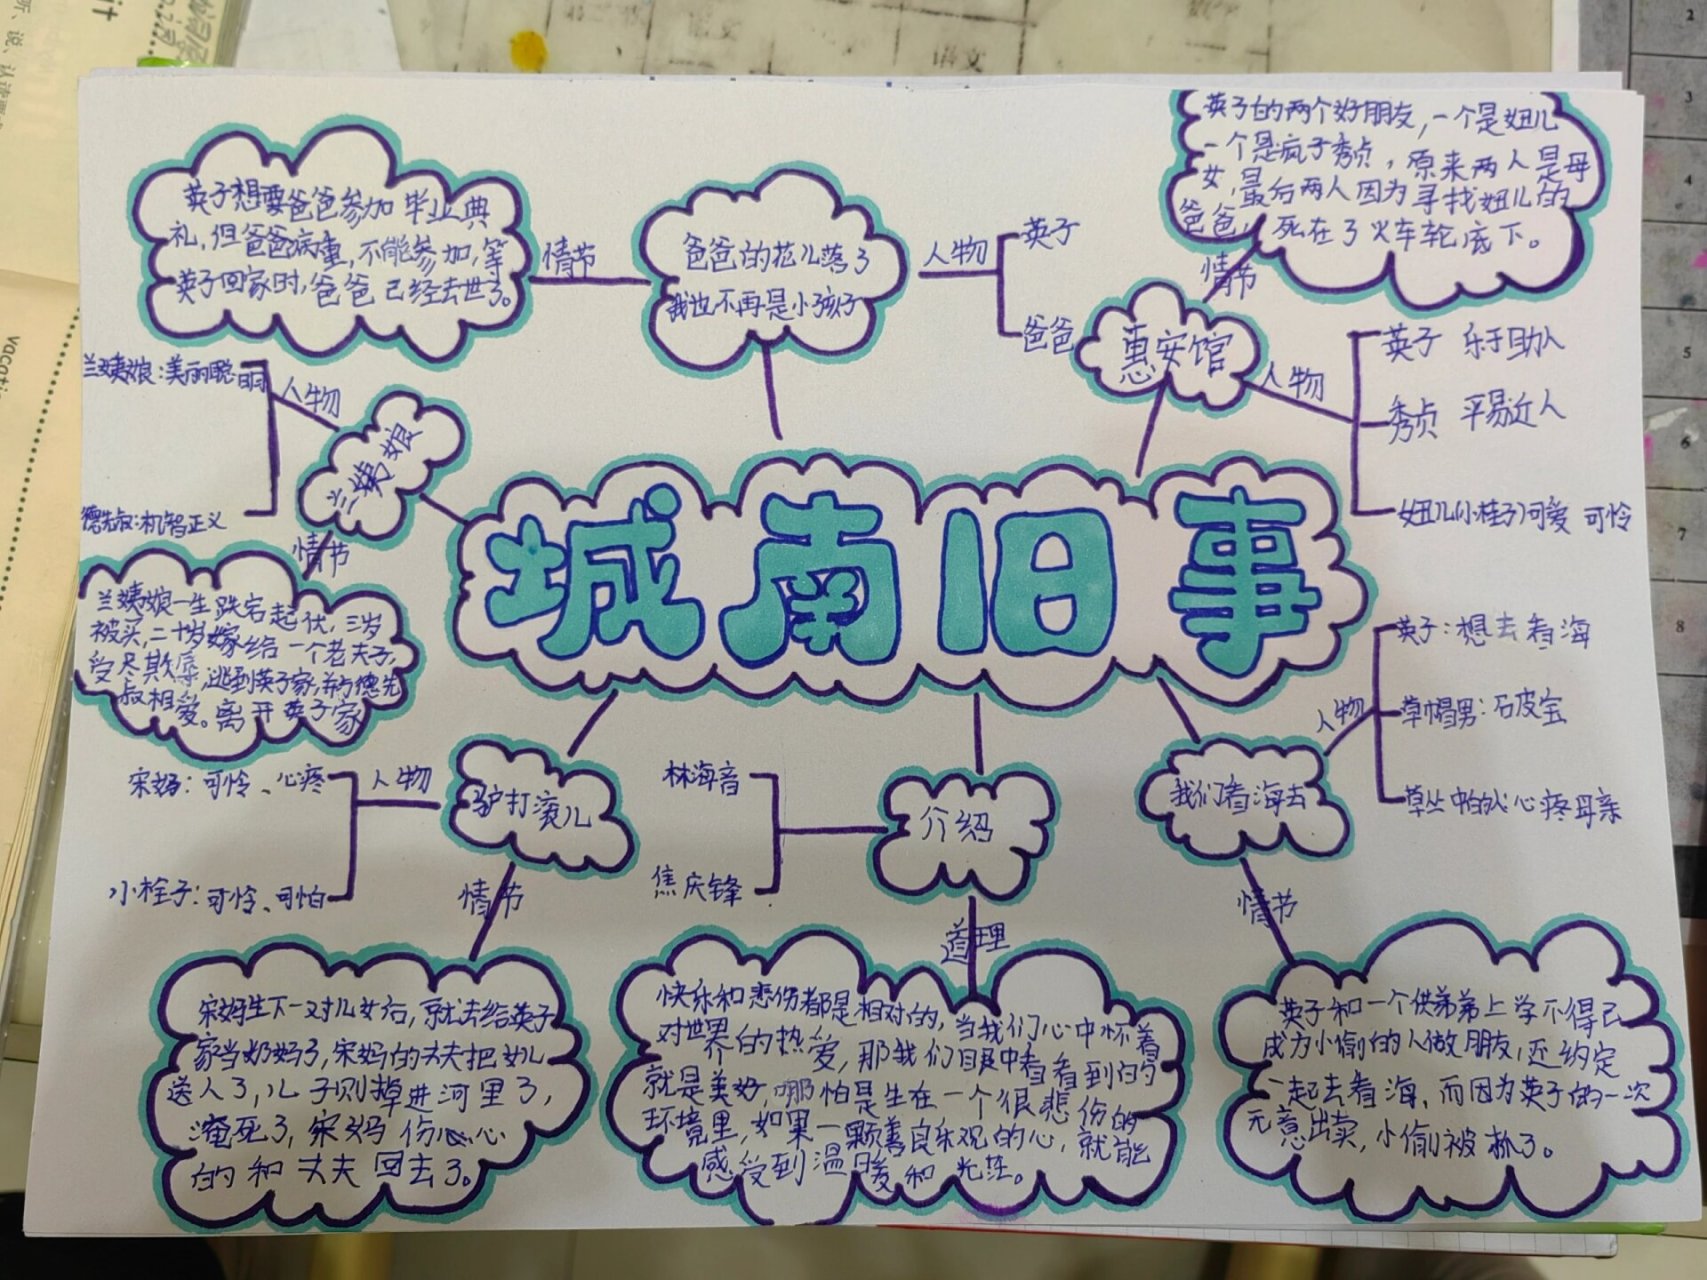 城南旧事
英子想要爸爸参加毕业典
礼,但爸爸病重,不能参加,等
英子回家时,爸爸已经去世了。
情节
爸爸的花儿落了
我也不再是小孩子
人物
英子
爸爸
英子的两个好朋友,一个是妞儿
一个是疯子秀贞,原来两人是母
女,最后两人因为寻找妞儿的
爸爸,死在了火车轮底下。
情节
惠安馆
人物
英子 乐于助人
秀贞 平易近人
妞儿(小桂子)可爱 可怜
兰姨娘:美丽聪明
人物
兰姨娘
德先叔:机智正义
情节
兰姨娘一生跌宕起伏,三岁
被买,二十岁嫁给一个老夫子,
受尽欺辱,逃到英子家,并与德先
叔相爱。离开英子家
英子:想去看海
人物
草帽男:石皮宝
草丛中的人:心疼母亲
我们看海去
情节
英子和一个供弟弟上学不得已
成为小偷的人做朋友,还约定
一起去看海,而因为英子的一次
无意出卖,小偷被抓了。
宋妈:可怜、心疼
人物
驴打滚儿
小栓子:可怜、可怕
情节
宋妈生下一对儿女后,就去给英子
家当奶妈了,宋妈的丈夫把女儿
送人了,儿子则掉进河里了,
淹死了,宋妈伤心心
的和丈夫回去了。
林海音
介绍
焦庆锋
道理
快乐和悲伤都是相对的,当我们心中怀着
对世界的热爱,那我们眼中看看到的
就是美好,哪怕是生在一个很悲伤的
环境里,如果一颗善良乐观的心,就能
感受到温暖和光茫。